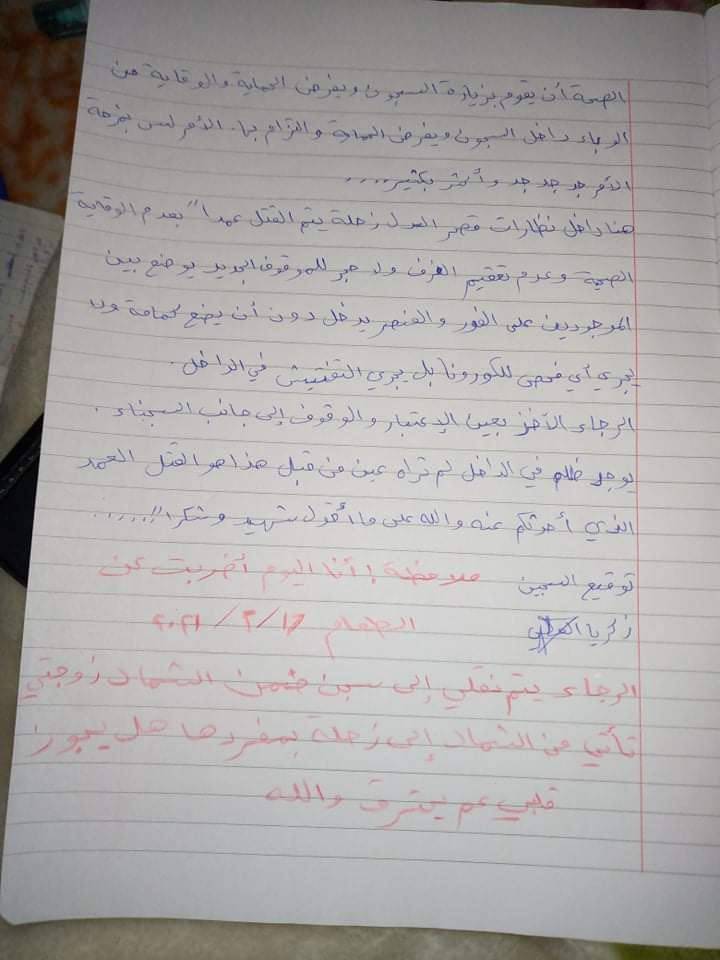 الصحة أن يقوم بزيارة السجون ويفرض الحماية والوقاية من
الوباء داخل السجون ويفرض الحماية والتزام بها. الأمر ليس بمزحة
الأمر جد جد جد وأكثر بكثير....
هنا داخل نظارات قصر العدل زحلة يتم القتل عمداً " بعدم الوقاية
الصحية وعدم تعقيم الغرف ولا حجر للموقوف الجديد يوضع بين
الموجودين على الفور والعنصر يدخل دون أن يضع كمامة ولا
يجري أي فحص للكورونا بل يجري التفتيش في الداخل.
الرجاء الأخذ بعين الإعتبار والوقوف إلى جانب السجناء.
يوجد ظلم في الداخل لم تراه عين من قبل هذا هو القتل العمد
الذي أحدثكم عنه والله على ما أقول شهيد وشكرا"......
توقيع السجين ملاحظة! أنا اليوم أضربت عن
زكريا الطعام ٢٠٢١/٢/١٧
الرجاء يتم نقلي إلى سجن ضمن الشمال زوجتي
تأتي من الشمال إلى زحلة بمفردها هل يجوز
قلبي عم يحترق والله